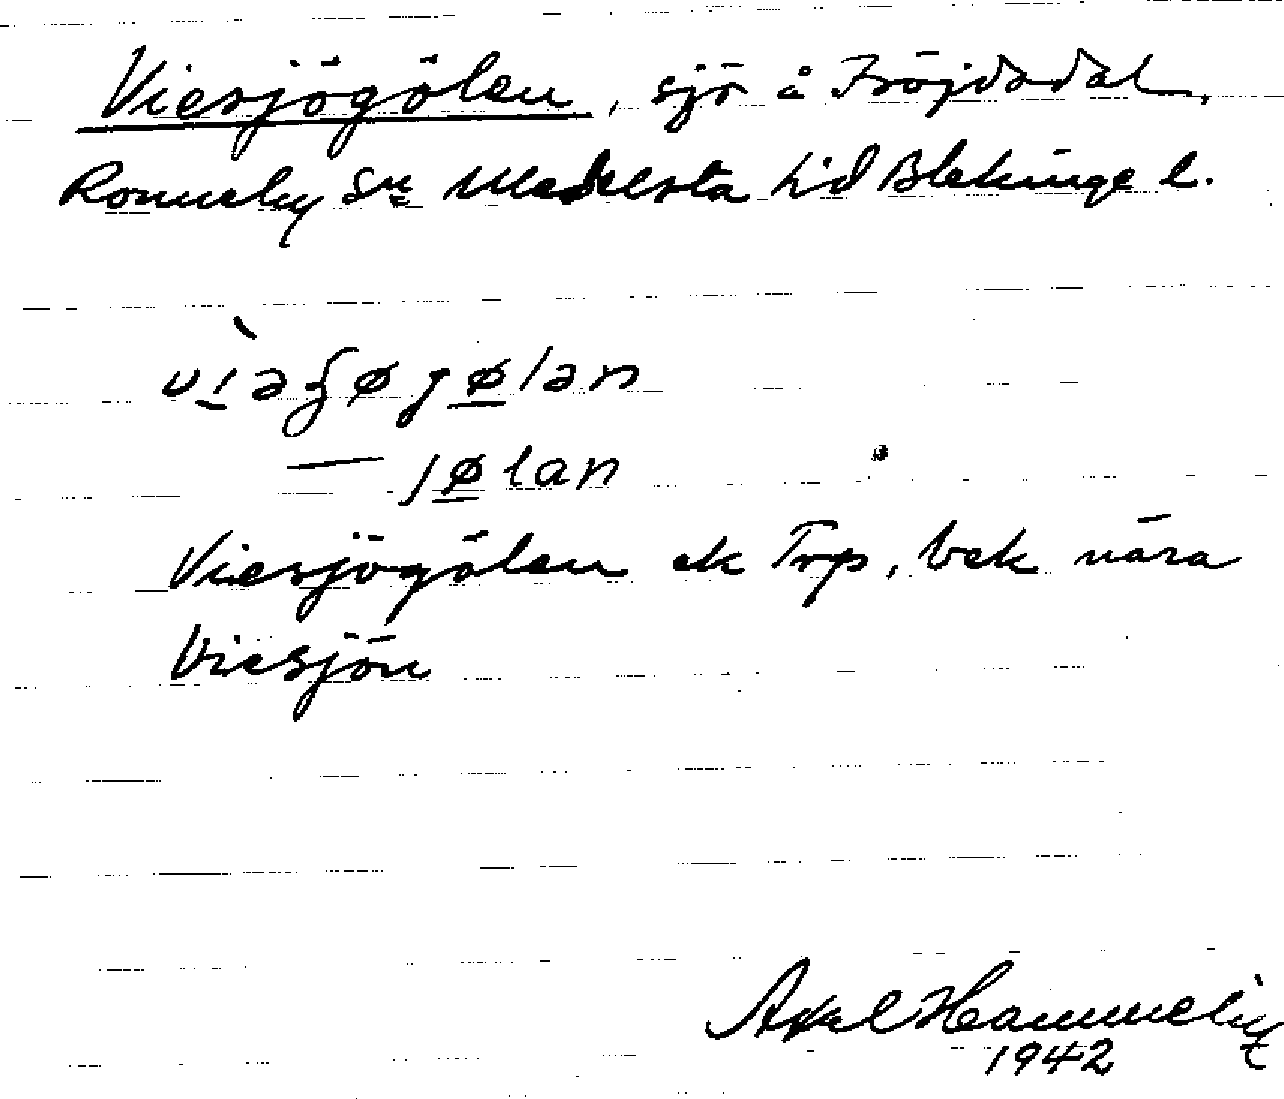 Viesjögölen, sjö å Fröjdadal,
Ronneby sn Medelsta hd Blekinge l.
vìəʃøgølan
— jølan
Viesjögölen ek Trp, bek nära
Viesjön
Axel Hammelin
1942